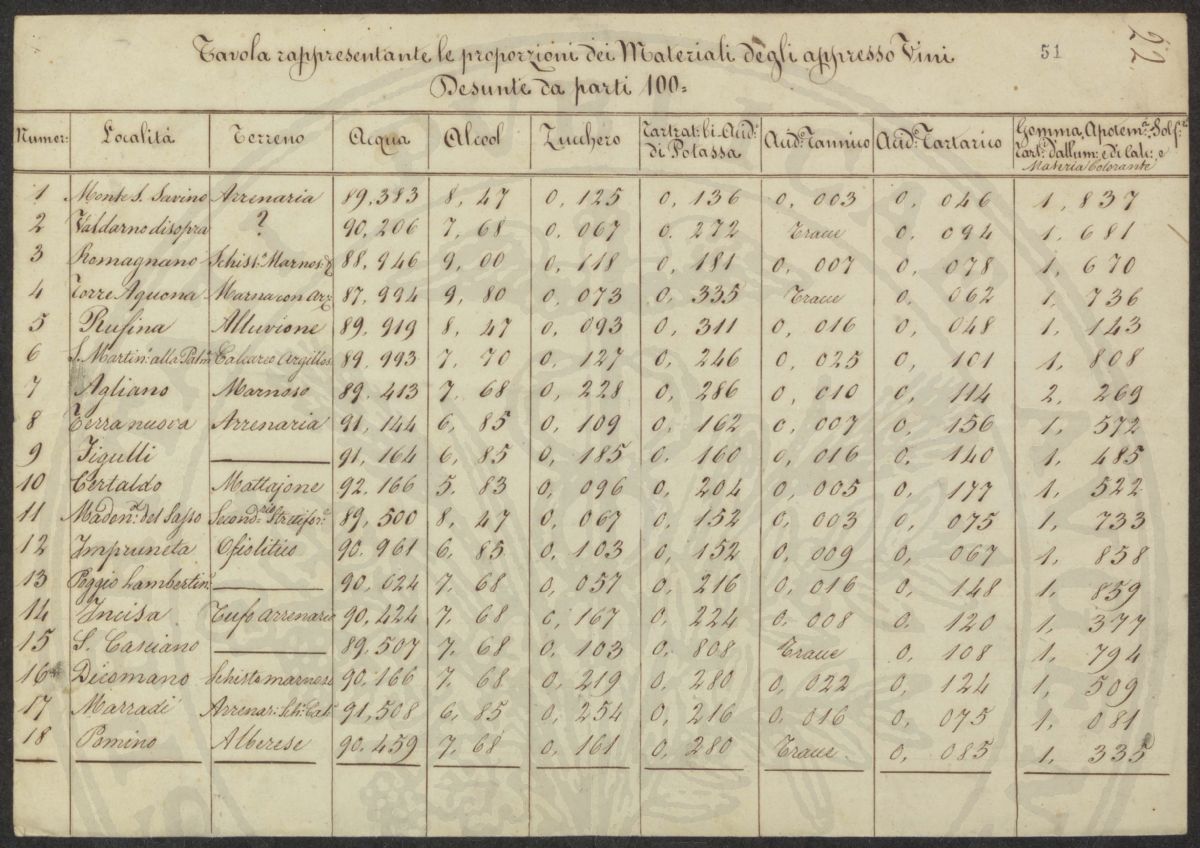 22.
51
Tavola rappresentante le proporzioni dei Materiali degli appresso Vini
Desunte da parti 100=
Numer: Località Terreno Acqua Alcool Zucchero Tartrat: bi Acid: di Potassa Acid: Tannico Acid: Tartarico Gomma, Apotem: Solf: Tart: d'allum: e di Calc: e Materia Colorante
1 Monte S. Savino Arrenaria 89,383 8,47 0,125 0,136 0,003 0,046 1,837
2 Valdarno disopra ? 90,206 7,68 0,067 0,272 Tracce 0,094 1,681
3 Romagnano Schist: Marnos: 88,946 9,00 0,118 0,181 0,007 0,078 1,670
4 Torre Aguona Marna con 87,994 9,80 0,073 0,335 Tracce 0,062 1,736
5 Rufina Alluvione 89,919 8,47 0,093 0,311 0,016 0,048 1,143
6 S. Martin: alla Palm: Calcareo Argillos: 89,993 7,70 0,127 0,246 0,025 0,101 1,808
7 Agliano Marnoso 89.413 7,68 0,228 0,286 0,010 0,114 2,269
8 Terranuova Arrenaria 91,144 6,85 0,109 0,162 0,007 0,156 1,572
9 Figulli 91,164 6,85 0,185 0,160 0,016 0,140 1,485
10 Certaldo Mattajone 92.166 5.83 0,096 0,204 0,005 0,177 1,522
11 Madon: del Sasso Second:rio Stratifor: 89,500 8,47 0,067 0,152 0,003 0,075 1,733
12 Impruneta Ofiolitico 90.961 6,85 0,103 0,152 0,009 0,067 1,858
13 Poggio Lambertin: 90.024 7.68 0,057 0,216 0,016 0,148 1,859
14 Incisa Tufo arrenario 90,424 7,68 0,167 0,224 0,008 0,120 1,377
15 S. Casciano 89.507 7,68 0,103 0,808 Tracce 0,108 1,794
16 Dicomano Schisto marnoso 90.166 7,68 0,219 0,280 0,022 0,124 1,509
17 Marradi Arrenar: Sch: Cal: 91,508 6,85 0,254 0,216 0,016 0,075 1,081
18 Pomino Alberese 90.459 7,68 0,161 0,280 Tracce 0,085 1,335